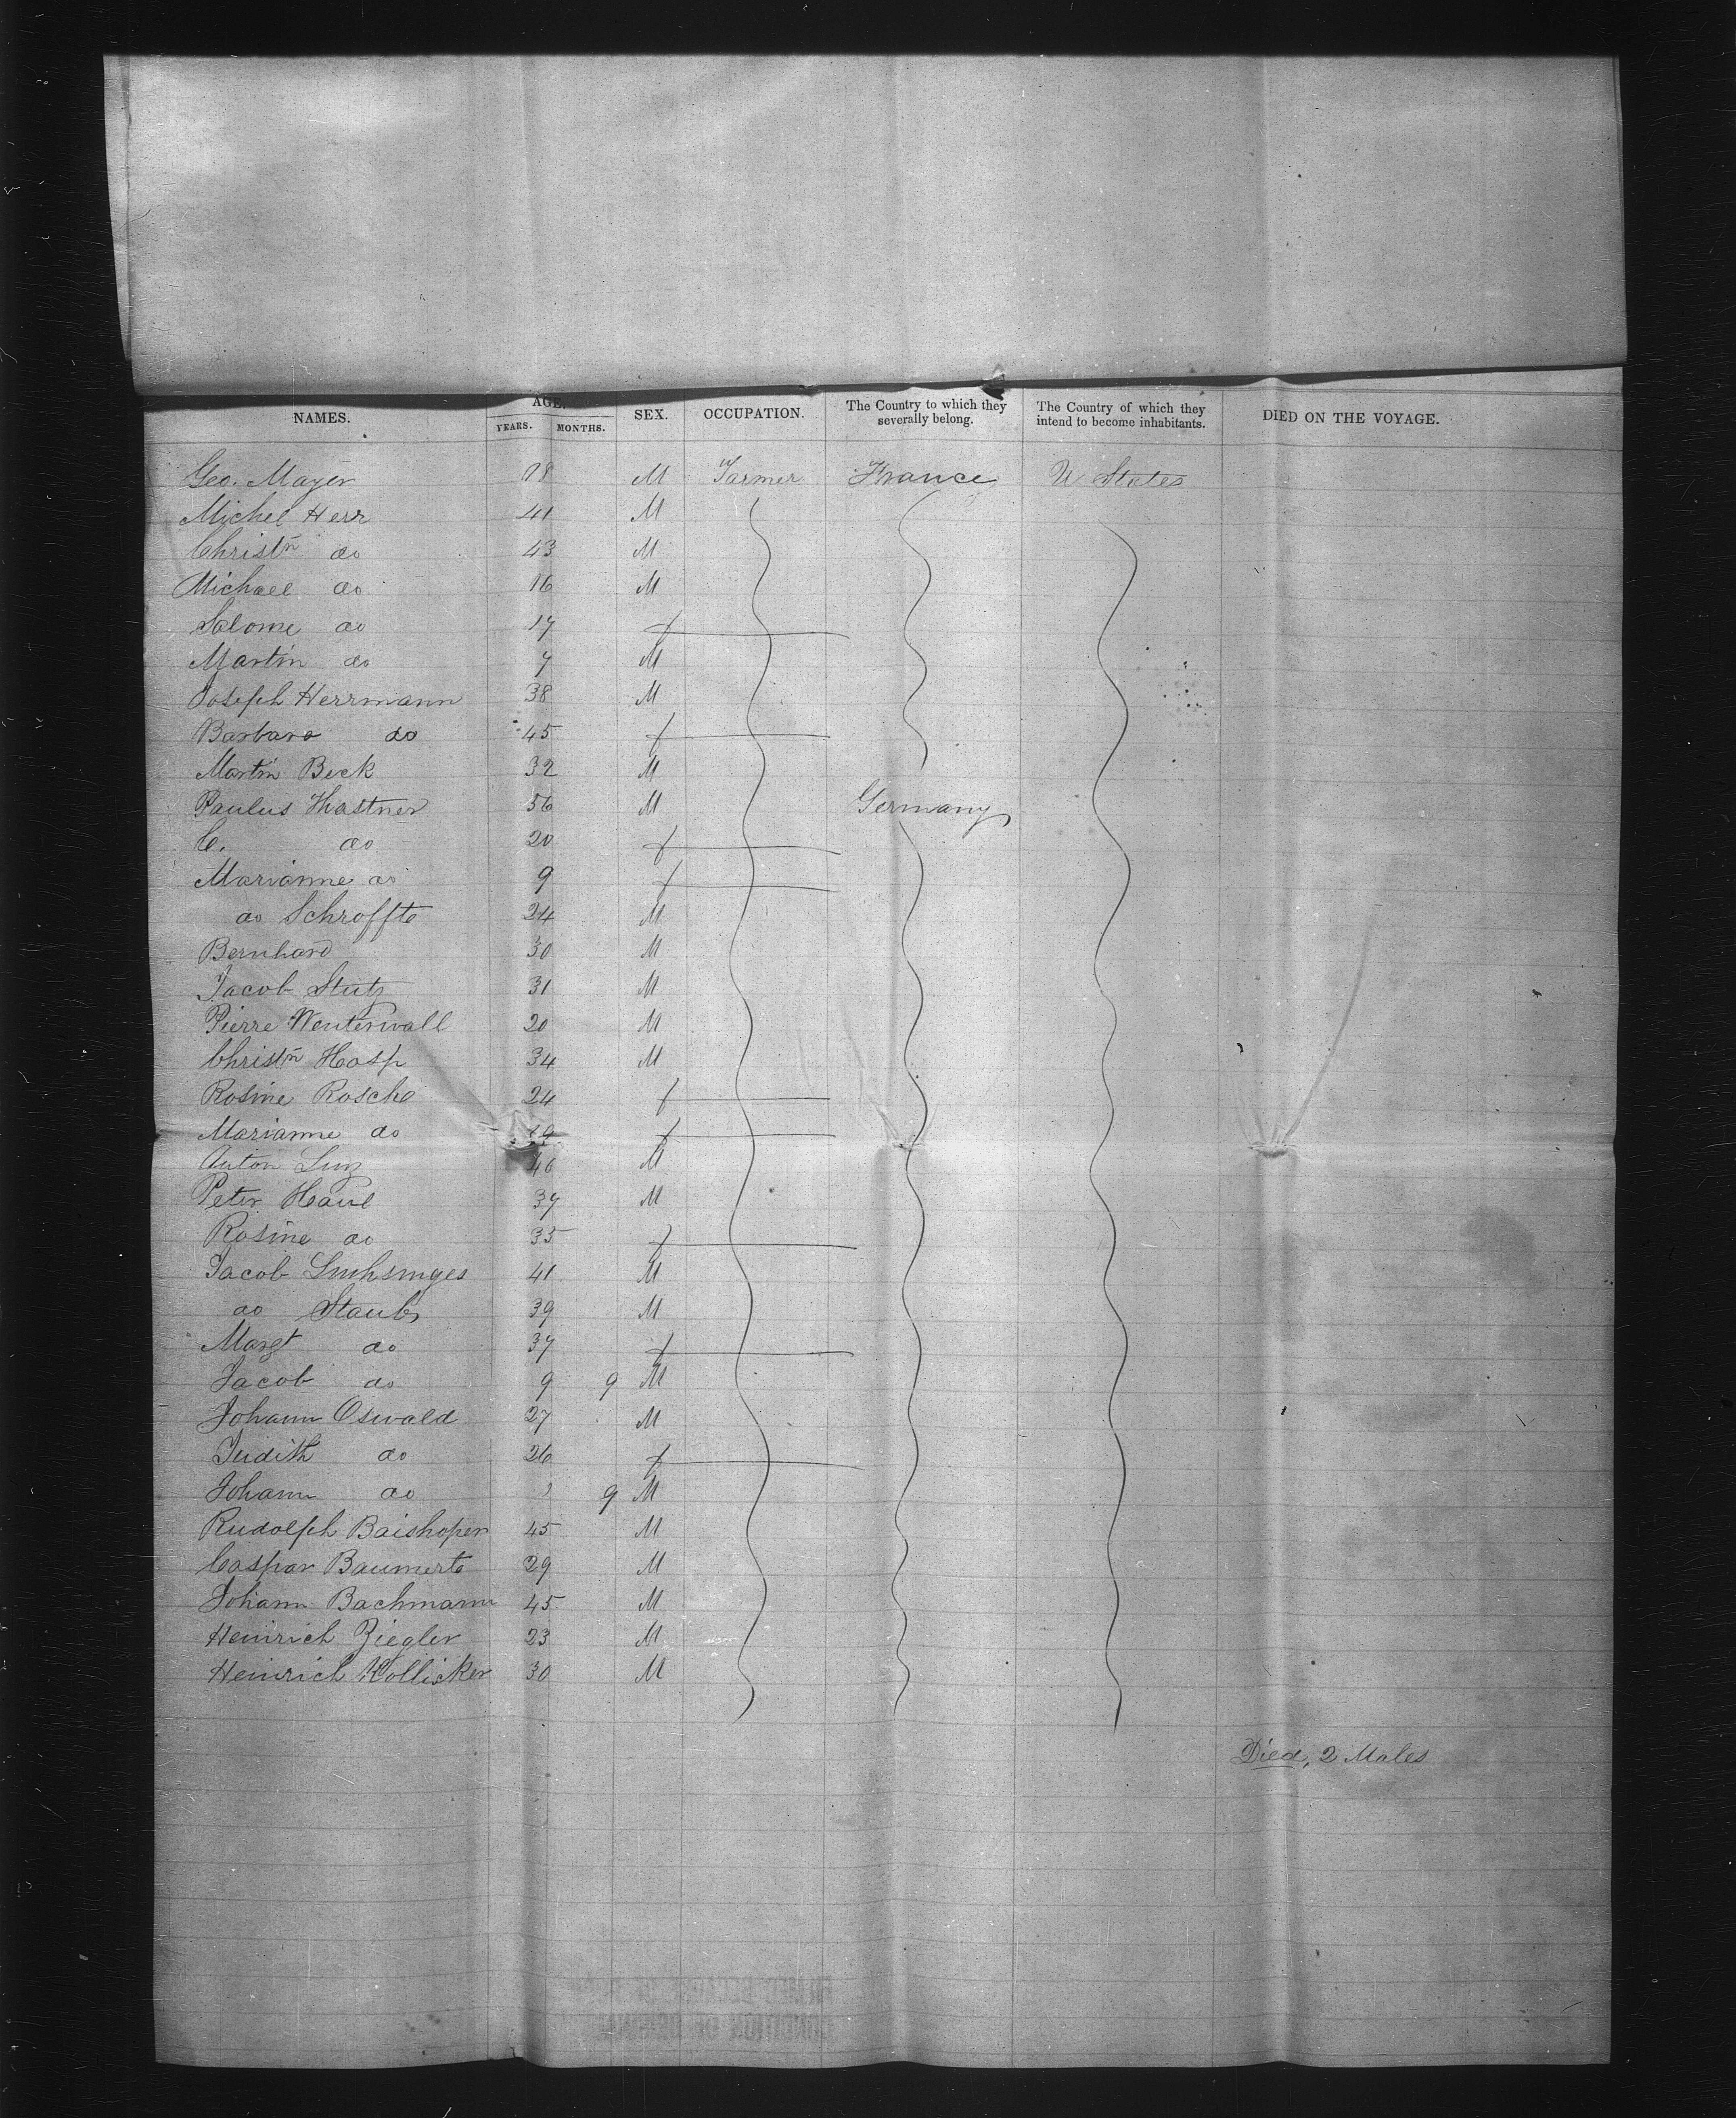 NAMES. AGE. YEARS. MONTHS. SEX. OCCUPATION. The Country to which they severally belong. The Country of which they intend to become inhabitants. DIED ON THE VOYAGE.
Geo. Mayer 18 M Farmer France U States
Michel Herr 41 M
Christn do 43 M
Michael do 16 M
Salome do 17 f
Martin do 7 M
Joseph Herrmann 38 M
Barbara do 45 f
Martin Beck 32 M
Paulus Khastner 56 M Germany
C. do 20 f
Marianne do 9 f
do Schroffte 24 M
Bernhard 30 M
Jacob Stutz 31 M
Pierre Wenterwall 20 M
Christn Hasp 34 M
Rosine Rosche 24 f
Marianne do 19 f
Anton Linz 46 M
Peter Haul 37 M
Rosine do 35 f
Jacob Luchsinges 41 M
do Staub 39 M
Margt do 37 f
Jacob do 9 9 M
Johann Oswald 27 M
Judith do 26 f
Johann do 1 9 M
Rudolph Baishoper 45 M
Caspar Baumerte 29 M
Johann Bachmann 45 M
Heinrich Ziegler 23 M
Heinrich Kollisker 30 M
Died, 2 Males